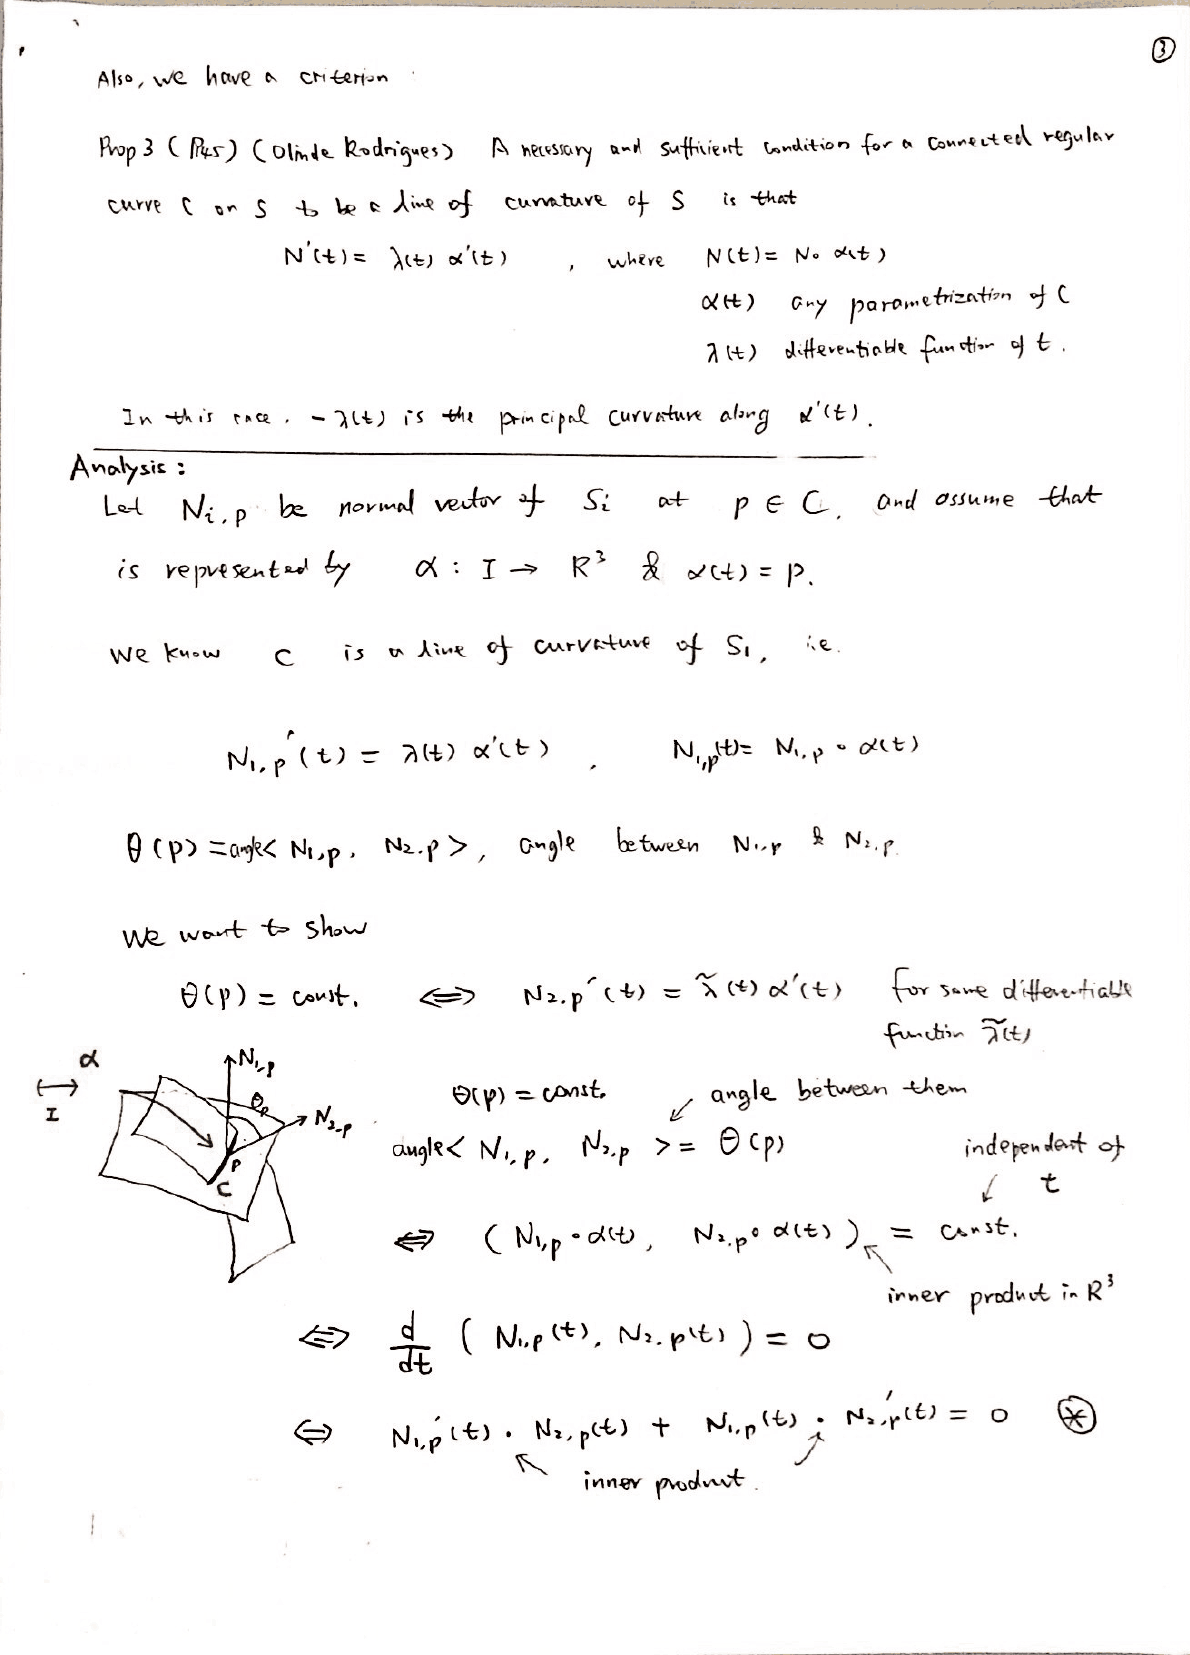 ③
Also, we have a criterion :
Prop 3 (P145) (Olinde Rodrigues) A necessary and sufficient condition for a connected regular
curve C on S to be a line of curvature of S is that
N'(t) = λ(t) α'(t) , where N(t) = N∘α(t)
α(t) any parametrization of C
λ(t) differentiable function of t.
In this case, -λ(t) is the principal curvature along α'(t).
Analysis :
Let Ni,p be normal vector of Si at p ∈ C, and assume that
is represented by α : I → R³ & α(t) = p.
We know C is a line of curvature of S1, i.e.
N1,p'(t) = λ(t) α'(t) , N1,p(t) = N1,p ∘ α(t)
θ(p) = angle< N1,p, N2,p >, angle between N1,p & N2,p.
We want to show
θ(p) = const. ⇔ N2,p'(t) = λ̃(t) α'(t) for some differentiable
function λ̃(t)
α
I
N1,p
θp
N2,p
p
C
θ(p) = const. angle between them
angle< N1,p, N2,p > = θ(p) independent of
t
⇔ ( N1,p∘α(t), N2,p∘α(t) ) = const.
inner product in R³
⇔ d/dt ( N1,p(t), N2,p(t) ) = 0
⇔ N1,p'(t) · N2,p(t) + N1,p(t) · N2,p'(t) = 0 ⊛
inner product.